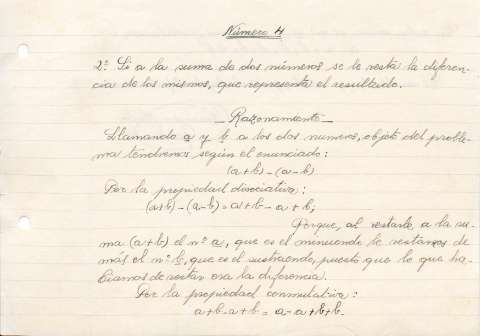 Número 4
2º Si a la suma de dos números se le resta la diferen-
cia de los mismos, que representa el resultado.
Razonamiento
Llamando a y b a los dos numeros, objeto del proble-
ma tendremos según el enunciado:
(a+b)-(a-b)
Por la propiedad disociativa:
(a+b)-(a-b)=a+b-a+b;
Porque, al restarle, a la su-
ma (a+b) el nº a, que es el minuendo le restamos de
más el nº b, que es el sustraendo, puesto que lo que ha-
biamos de restar era la diferencia.
Por la propiedad conmutativa:
a+b-a+b = a-a+b+b